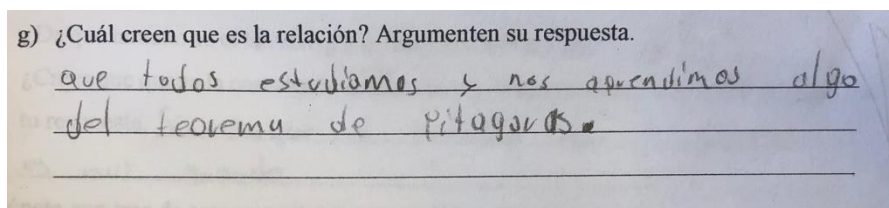 g) ¿Cuál creen que es la relación? Argumenten su respuesta.
que todos estudiamos y nos aprendimos algo
del teorema de Pitagoras.